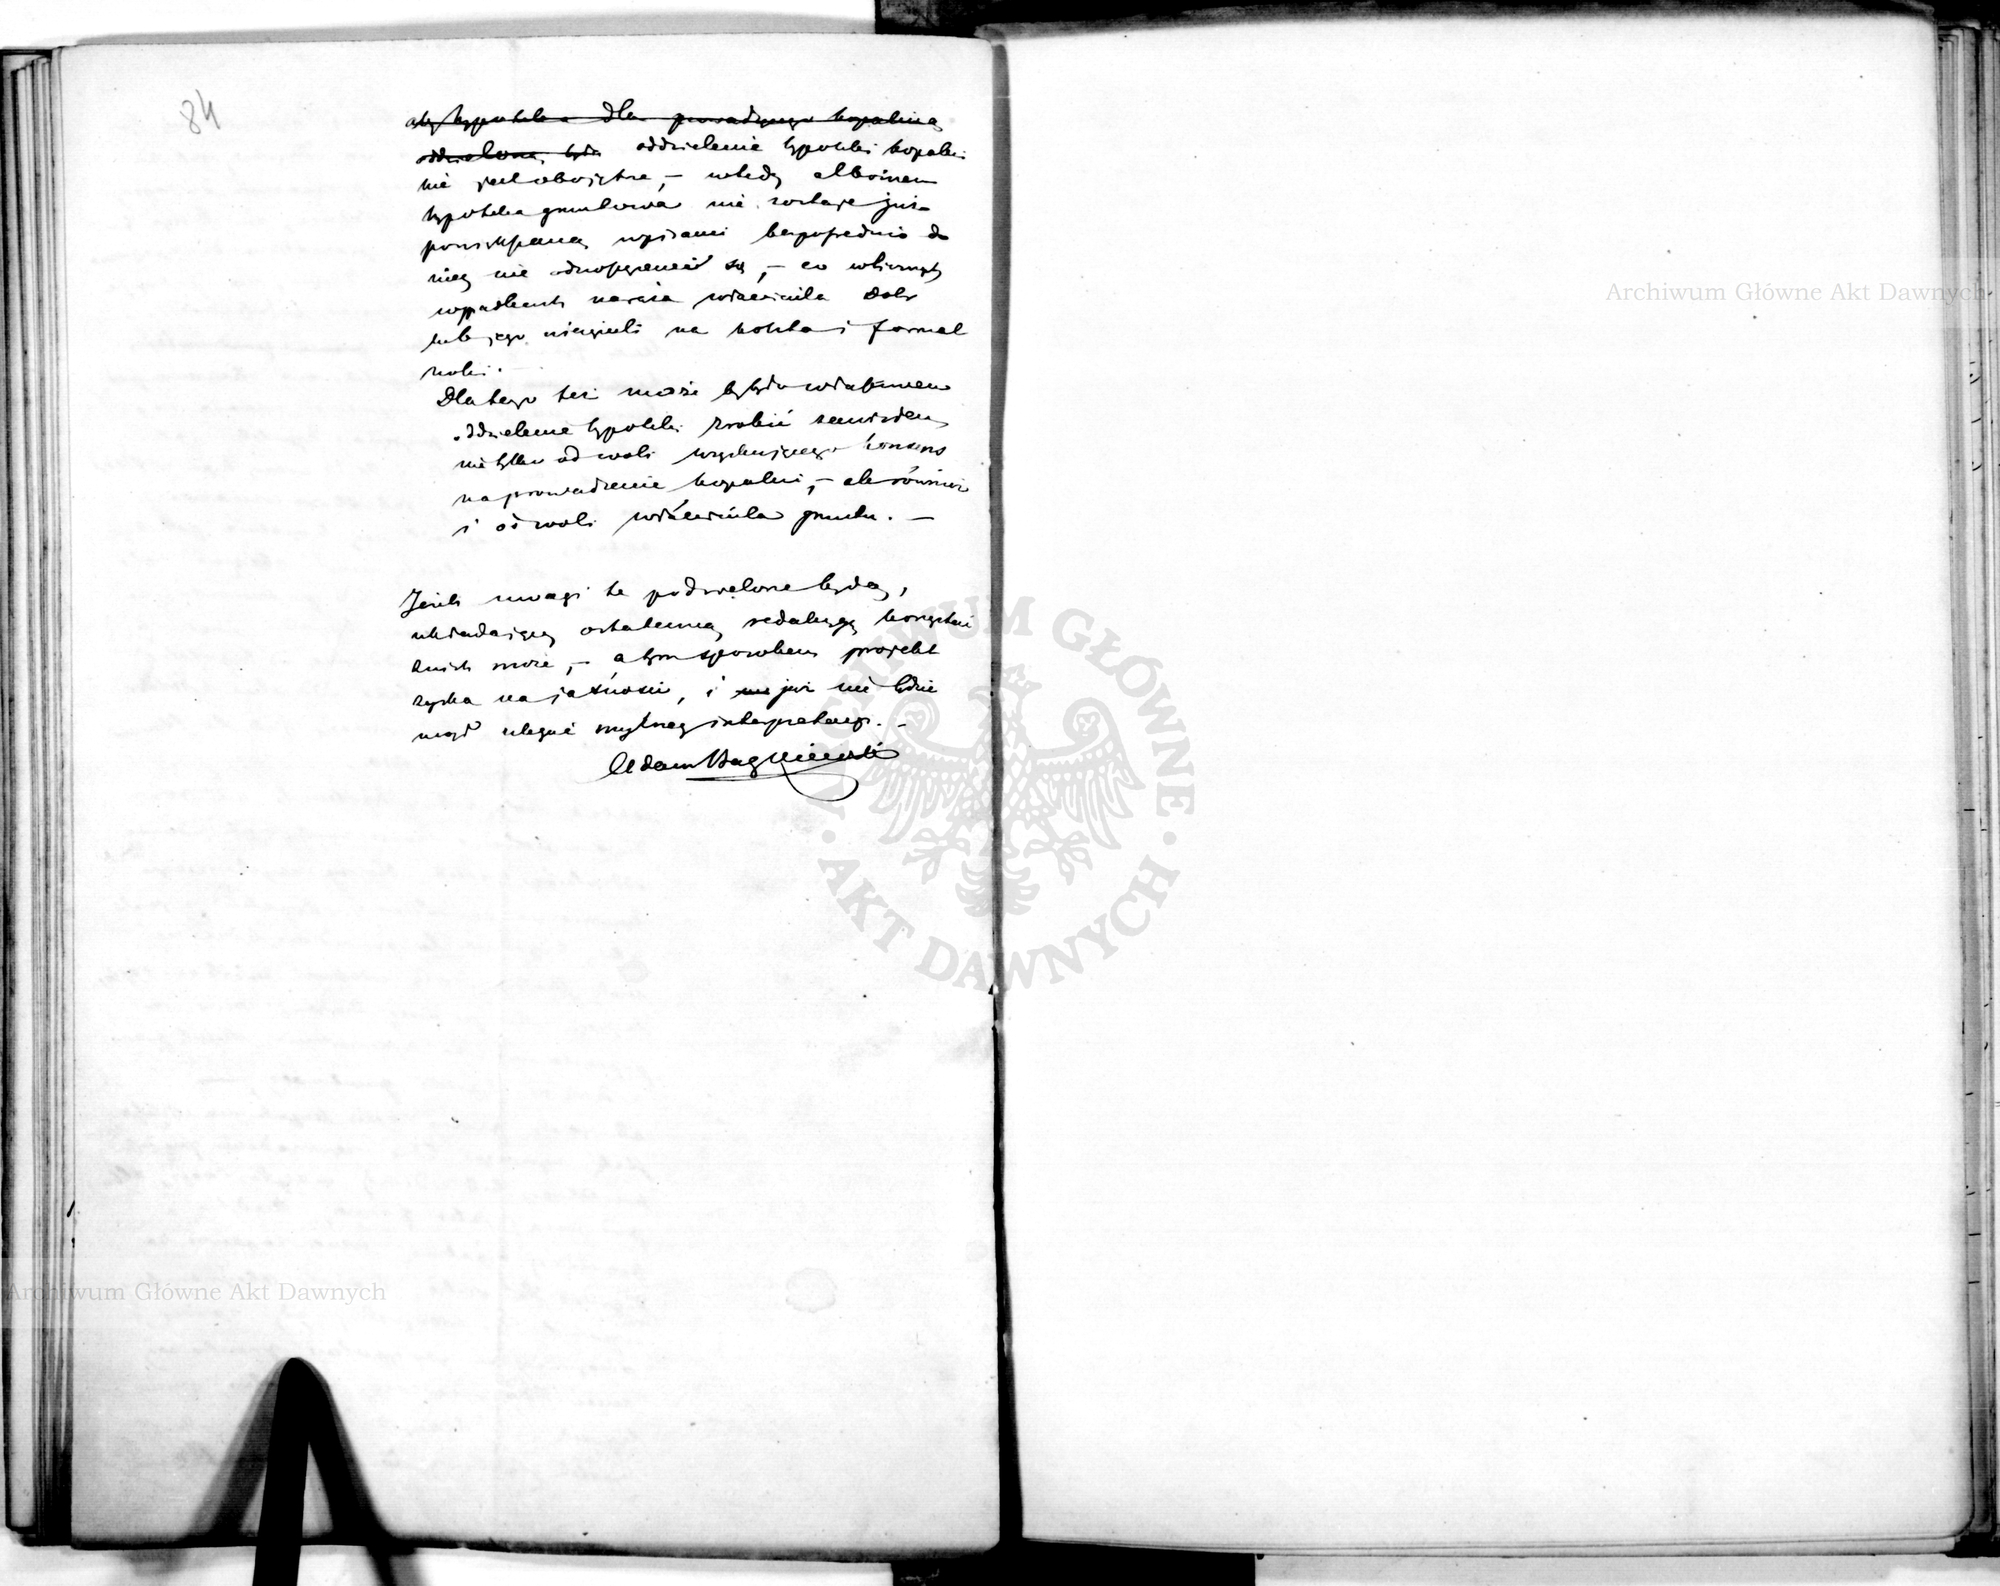 84
aby hypoteka dla prowadzącego kopalnię
oddzieloną była oddzielenie hypoteki kopalni
nie jest obojętne, – wtedy albowiem
hypoteka gruntowa nie zostaje już
wpisami bezpośrednio do
niej nie odnoszącemi się, – co w licznych
wypadkach naraża właściciela dóbr
lub jego wierzycieli na koszta i formal
ności.
Dla tego też może byłoby właściwem
oddzielenie hypoteki zrobić zawisłem
nie tylko od woli uzyskującego konsens
na prowadzenie kopalni, – ale również
i od woli właściciela gruntu. –
Jeżeli uwagi te podzielone będą,
układający ostateczną redakcyę korzystać
z nich może, – a tym sposobem projekt
zyska na jasności, i już nie będzie
mógł uledz mylnej interpretacyi. –
Adam
ARCHIWUM GŁÓWNE AKT DAWNYCH
Archiwum Główne Akt Dawnych
Archiwum Główne Akt Dawnych